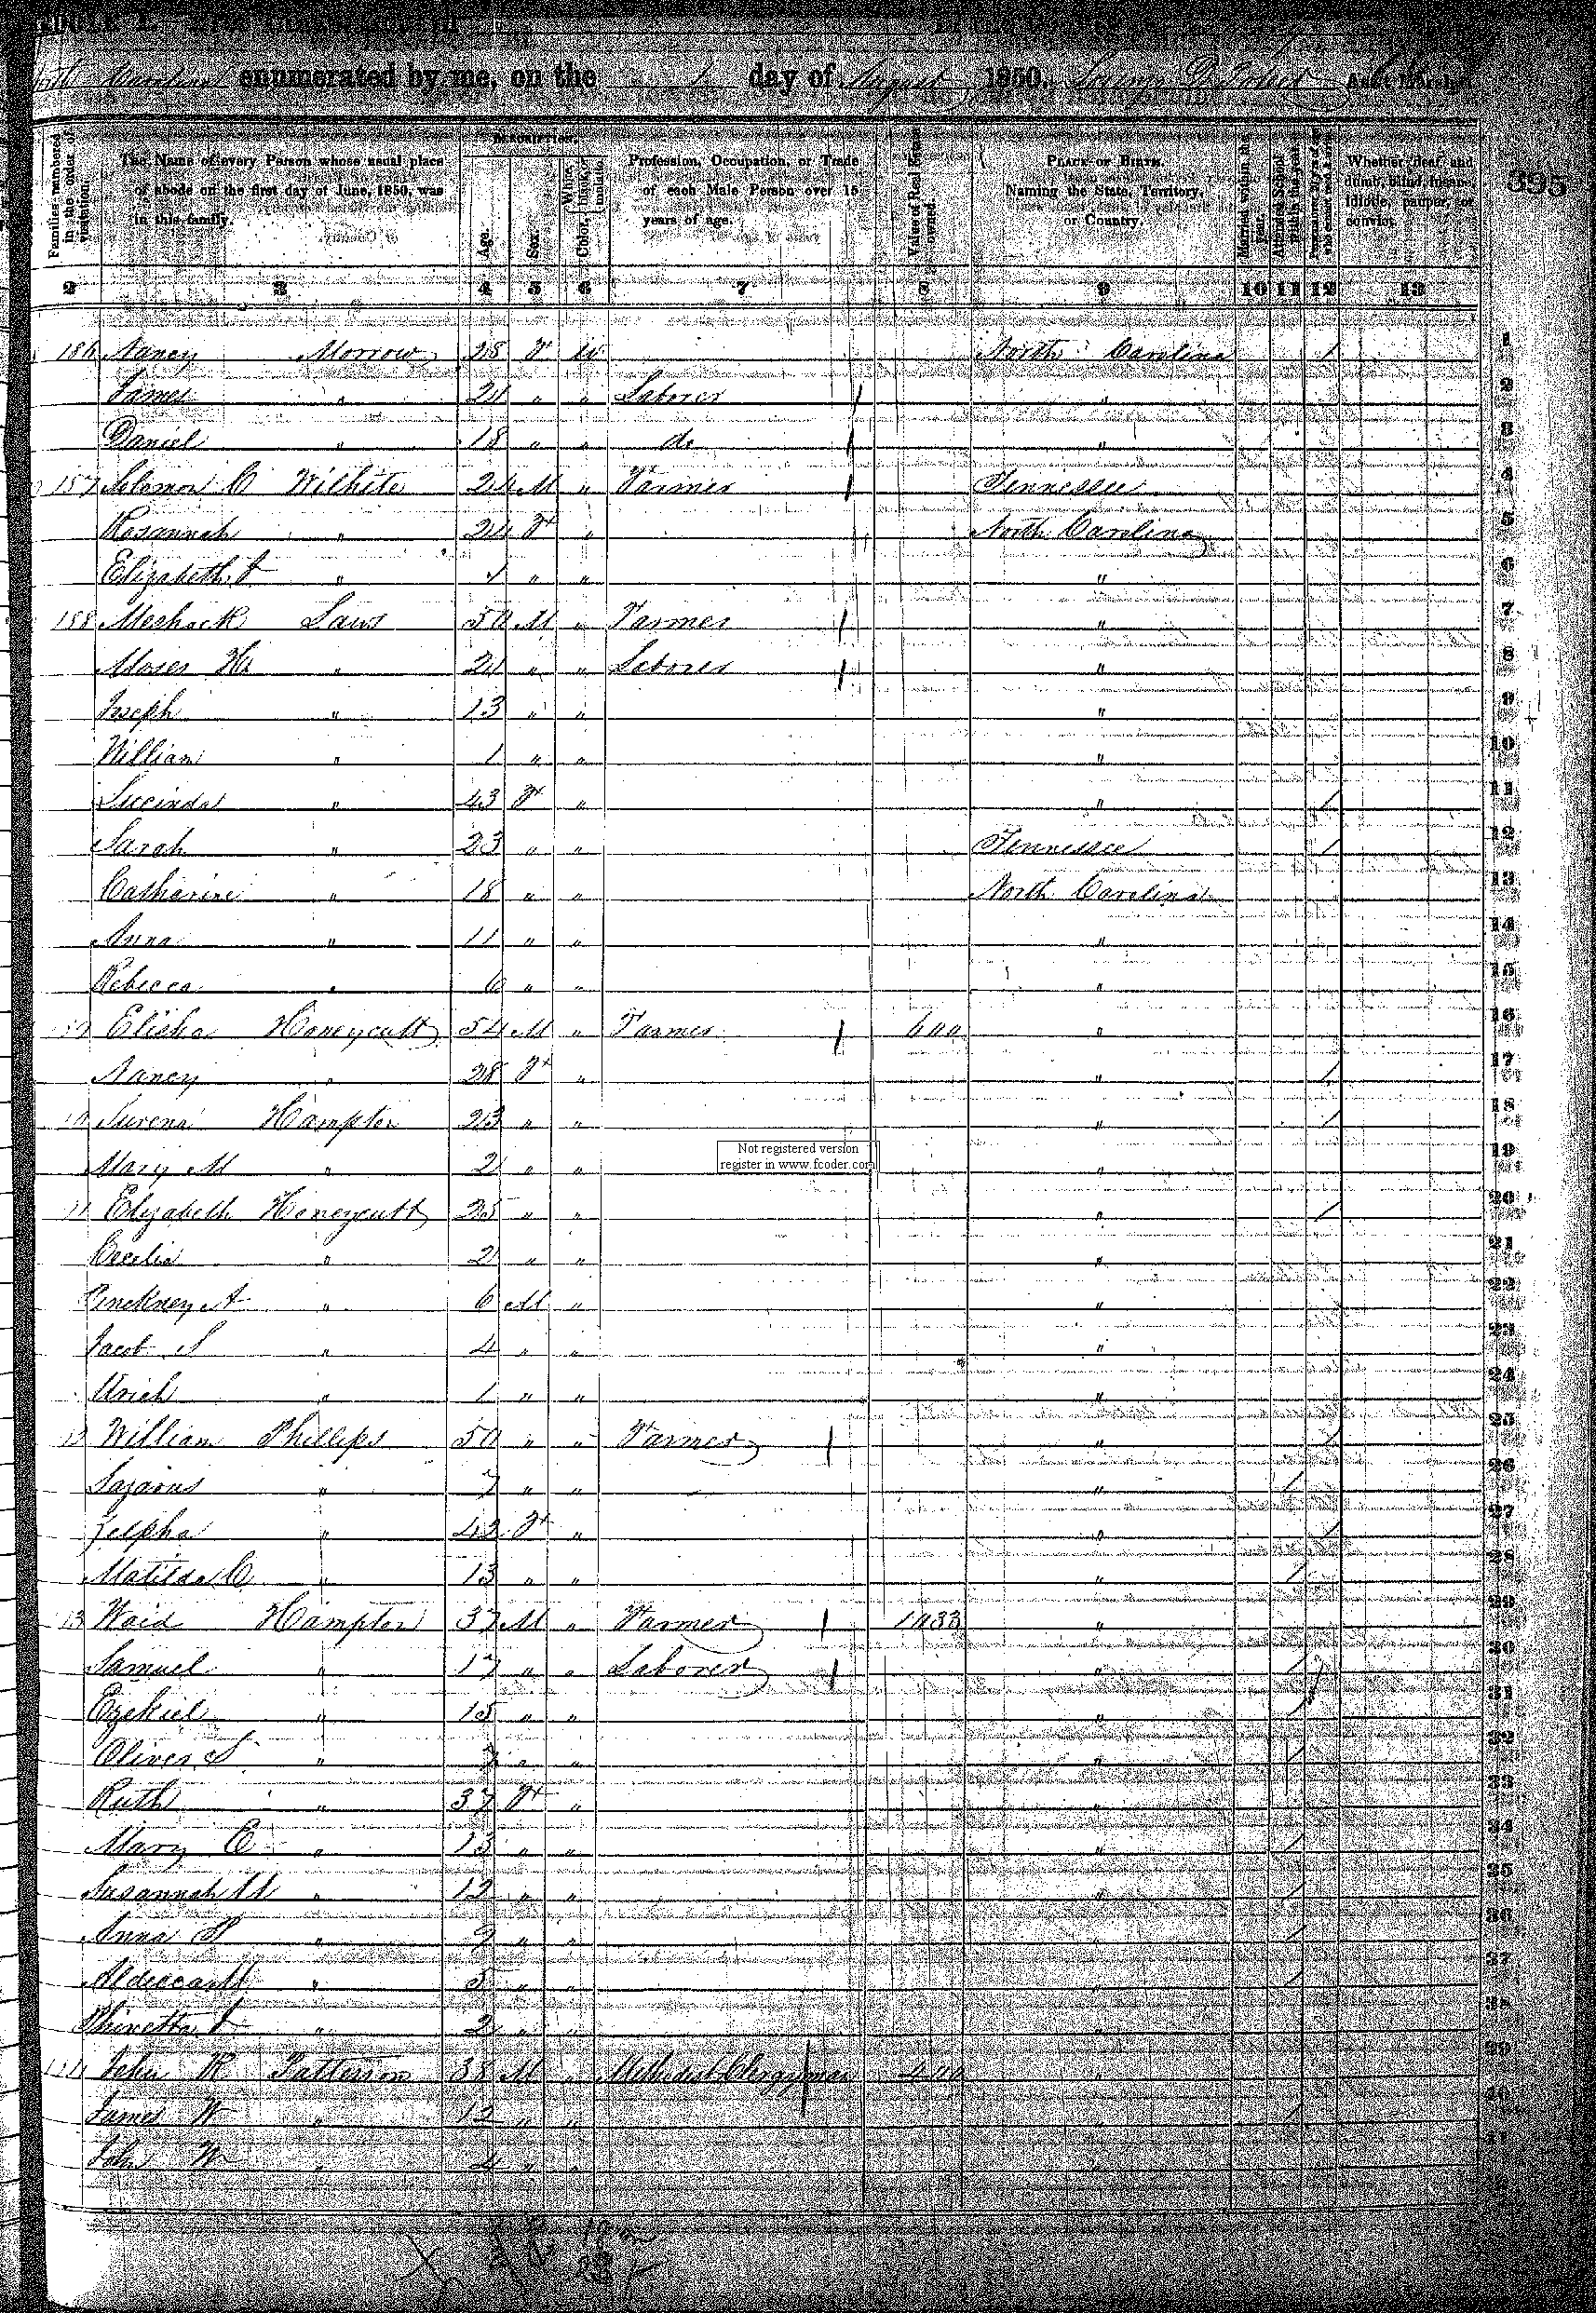 North Carolina enumerated by me, on the 1 day of August 1850. Ass't Marshal.
395
Families numbered in the order of visitation.
The Name of every Person whose usual place of abode on the first day of June, 1850, was in this family.
DESCRIPTION.
Age.
Sex.
Color, White, black, or mulatto.
Profession, Occupation, or Trade of each Male Person over 15 years of age.
Value of Real Estate owned.
PLACE OF BIRTH. Naming the State, Territory, or Country.
Married within the year.
Attended School within the year.
Persons over 20 y'rs of age who cannot read & write.
Whether deaf and dumb, blind, insane, idiotic, pauper, or convict.
2 3 4 5 6 7 8 9 10 11 12 13
186 Nancy Morrow 28 F W North Carolina / 1
James " 21 " " Laborer " 2
Daniel " 18 " " do " 3
187 Solomon C Wilhite 24 M " Farmer Tennessee 4
Rosannah " 24 F " North Carolina 5
Elizabeth " 1 " " " 6
188 Meshack Laws 50 M " Farmer " 7
Moses " 21 " " Laborer " 8
Joseph " 13 " " " 9
William " 1 " " " 10
Lucinda " 43 F " " / 11
Sarah " 23 " " Tennessee / 12
Catharine " 18 " " North Carolina 13
Anna " 11 " " " 14
Rebecca " 6 " " " 15
Elisha Honeycutt 54 M " Farmer 600 " 16
Nancy " 28 F " " / 17
Surena Hampton 23 " " " / 18
Not registered version
register in www.fcoder.com
Mary M " 2 " " " 19
Elizabeth Honeycutt 25 " " " / 20
Cecelia " 2 " " " 21
Pinckney A " 6 M " " 22
Jacob S " 4 " " " 23
Uriah " 1 " " " 24
William Phillips 50 " " Farmer " / 25
Lazarus " 7 " " " / 26
Zelpha " 42 F " " / 27
Matilda C " 13 " " " / 28
Waid Hampton 37 M " Farmer 1033 " 29
Samuel " 17 " " Laborer " / 30
Ezekiel " 15 " " " / 31
Oliver S " 7 " " " / 32
Ruth " 37 F " " 33
Mary E " 13 " " " / 34
Susannah M " 12 " " " / 35
Anna " 9 " " " / 36
" 5 " " / 37
" 2 " " " 38
John R Patterson 38 M " Methodist Clergyman 400 " 39
James W " 12 " " " / 40
John W " 4 " " " 41